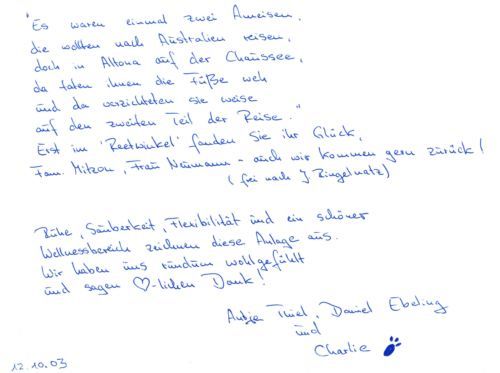 "Es waren einmal zwei Ameisen,
die wollten nach Australien reisen,
doch in Altona auf der Chaussee,
da taten ihnen die Füße weh
und da verzichteten sie weise
auf den zweiten Teil der Reise."
Erst im 'Reetwinkel' fanden sie ihr Glück,
Fam. Mitzon, Frau Neumann - auch wir kommen gern zurück!
(frei nach J. Ringelnatz)
Ruhe, Sauberkeit, Flexibilität und ein schöner
Wellnessbereich zeichnen diese Anlage aus.
Wir haben uns rundum wohlgefühlt
und sagen ♡-lichen Dank!
Antje Thiel, Daniel Ebeling
und
Charlie
12.10.03